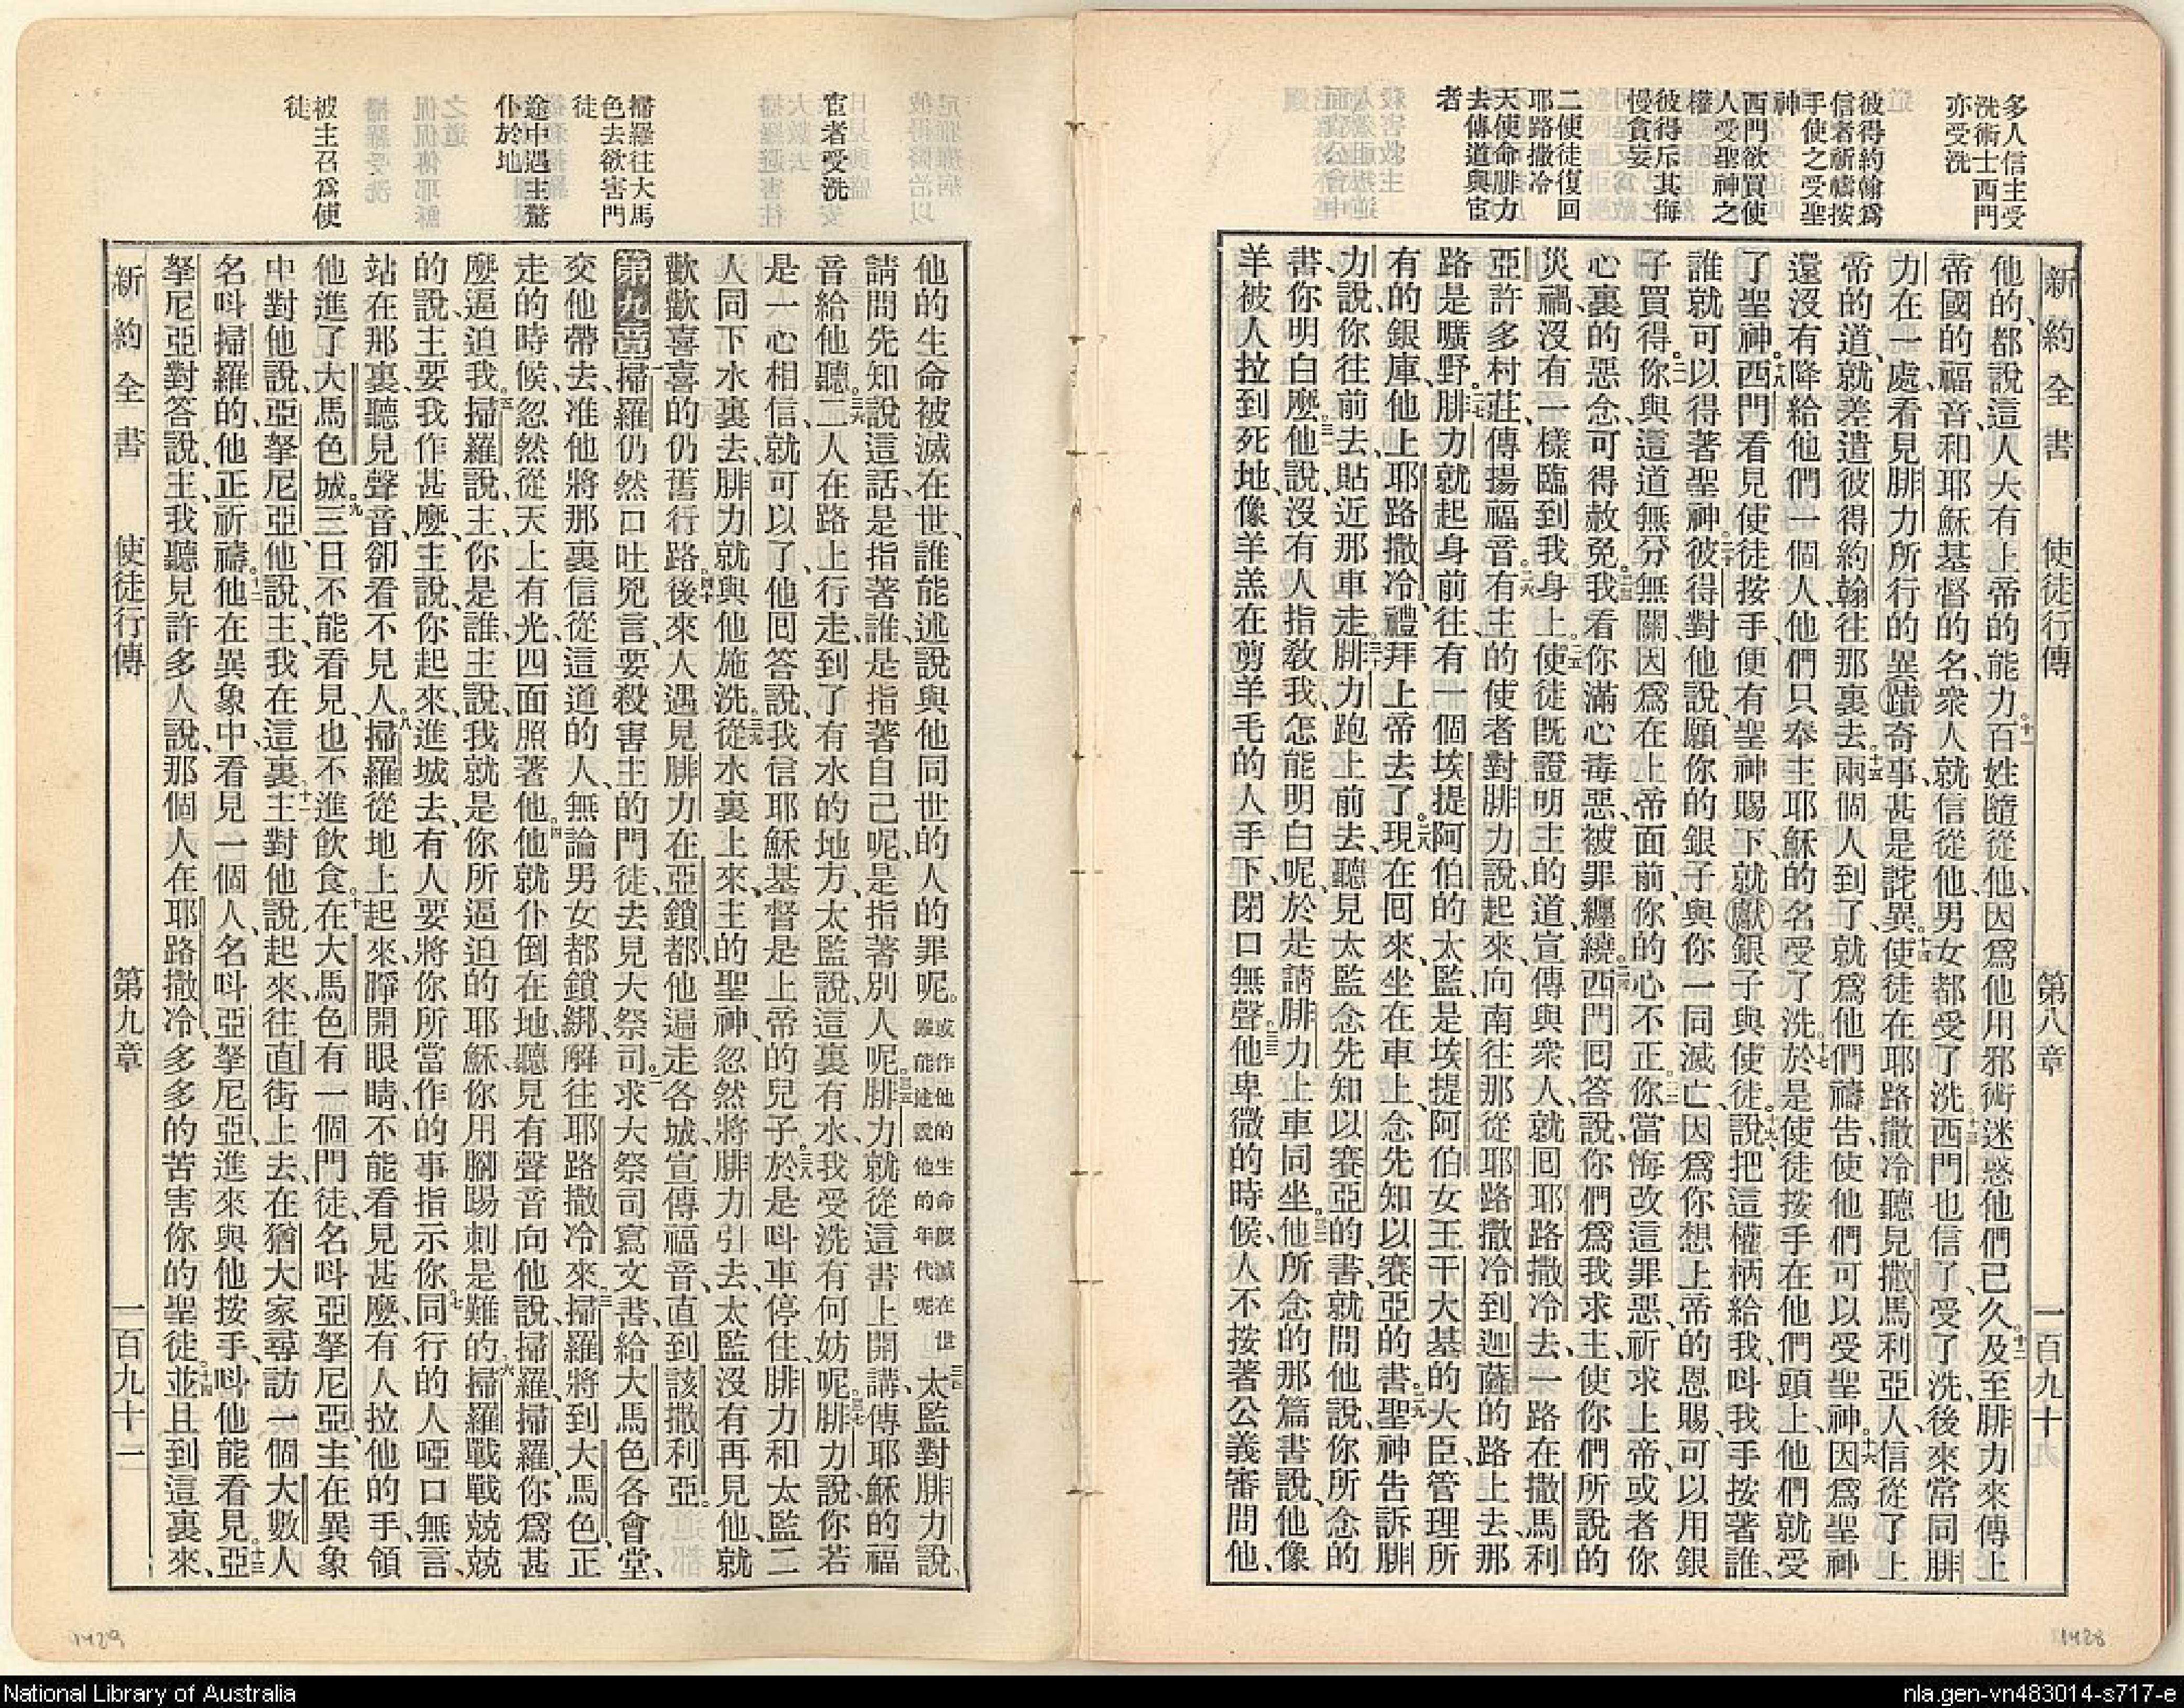 多人信主受
洗術士西門
亦受洗
彼得約翰爲
信者祈禱按
手使之受聖
神
西門欲買使
人受聖神之
權
彼得斥其侮
慢貪妄
二使徒復回
耶路撒冷
天使命腓力
去傳道與宦
者
新約全書 使徒行傳 第八章 一百九十
他的、都說這人大有上帝的能力。十一百姓隨從他、因爲他用邪術迷惑他們已久。十二及至腓力來傳上
帝國的福音和耶穌基督的名、衆人就信從他、男女都受了洗。十三西門也信了、受了洗、後來常同腓
力在一處、看見腓力所行的異蹟奇事、甚是詫異。十四使徒在耶路撒冷聽見撒馬利亞人、信從了上
帝的道、就差遣彼得約翰、往那裏去。十五兩個人到了、就爲他們禱告、使他們可以受聖神。十六因爲聖神
還沒有降給他們一個人、他們只奉主耶穌的名受了洗。十七於是使徒按手在他們頭上、他們就受
了聖神。十八西門看見使徒按手、便有聖神賜下、就獻銀子與使徒、十九說、把這權柄給我、呌我手按著誰、
誰就可以得著聖神。二十彼得對他說、願你的銀子、與你一同滅亡、因爲你想上帝的恩賜、可以用銀
子買得。二一你與這道無分無關、因爲在上帝面前、你的心不正。二二你當悔改這罪惡、祈求上帝、或者你
心裏的惡念、可得赦免。二三我看你滿心毒惡、被罪纏繞。二四西門回答說、你們爲我求主、使你們所說的
災禍、沒有一樣臨到我身上。二五使徒旣證明主的道、宣傳與衆人、就回耶路撒冷去、一路在撒馬利
亞許多村莊、傳揚福音。二六有主的使者對腓力說、起來、向南往那從耶路撒冷到迦薩的路上去、那
路是曠野。二七腓力就起身前往、有一個埃提阿伯的太監、是埃提阿伯女王干大基的大臣、管理所
有的銀庫、他上耶路撒冷禮拜上帝去了。二八現在回來、坐在車上、念先知以賽亞的書。二九聖神告訴腓
力說、你往前去、貼近那車走。三十腓力跑上前去、聽見太監念先知以賽亞的書、就問他說、你所念的
書、你明白麽。三一他說、沒有人指敎我、怎能明白呢、於是請腓力上車同坐。三二他所念的那篇書說、他像
羊被人拉到死地、像羊羔在剪羊毛的人手下、閉口無聲。三三他卑微的時候、人不按著公義審問他、
宦者受洗
掃羅往大馬
色去欲害門
徒
途中遇主驚
仆於地
被主召爲使
徒
他的生命被滅在世、誰能述說與他同世的人的罪呢。或作他的生命旣滅在世誰能述說他的年代呢三四太監對腓力說、
請問先知說這話、是指著誰、是指著自己呢、是指著別人呢。三五腓力就從這書上開講、傳耶穌的福
音給他聽。三六二人在路上行走、到了有水的地方、太監說、這裏有水、我受洗有何妨呢。三七腓力說、你若
是一心相信、就可以了、他回答說、我信耶穌基督是上帝的兒子。三八於是呌車停住、腓力和太監二
人同下水裏去、腓力就與他施洗。三九從水裏上來、主的聖神忽然將腓力引去、太監沒有再見他、就
歡歡喜喜的仍舊行路。四十後來人遇見腓力在亞鎖都、他遍走各城、宣傳福音、直到該撒利亞。
第九章 一掃羅仍然口吐兇言、要殺害主的門徒、去見大祭司。二求大祭司寫文書給大馬色各會堂、
交他帶去、准他將那裏信從這道的人、無論男女都鎖綁、解往耶路撒冷來。三掃羅將到大馬色、正
走的時候、忽然從天上有光、四面照著他。四他就仆倒在地、聽見有聲音向他說、掃羅、掃羅、你爲甚
麽逼迫我。五掃羅說、主、你是誰、主說、我就是你所逼迫的耶穌、你用腳踢刺是難的。六掃羅戰戰兢兢
的說、主要我作甚麽、主說、你起來、進城去、有人要將你所當作的事指示你。七同行的人啞口無言、
站在那裏、聽見聲音、卻看不見人。八掃羅從地上起來、睜開眼睛、不能看見甚麽、有人拉他的手、領
他進了大馬色城。九三日不能看見、也不進飲食。十在大馬色有一個門徒、名呌亞拏尼亞、主在異象
中對他說、亞拏尼亞、他說、主、我在這裏。十一主對他說、起來、往直街上去、在猶大家尋訪一個大數人
名呌掃羅的、他正祈禱。十二他在異象中、看見一個人、名呌亞拏尼亞、進來與他按手、呌他能看見。十三亞
拏尼亞對答說、主、我聽見許多人說、那個人在耶路撒冷、多多的苦害你的聖徒。十四並且到這裏來、
新約全書 使徒行傳 第九章 一百九十一
1429
1428
National Library of Australia
nla.gen-vn483014-s717-e